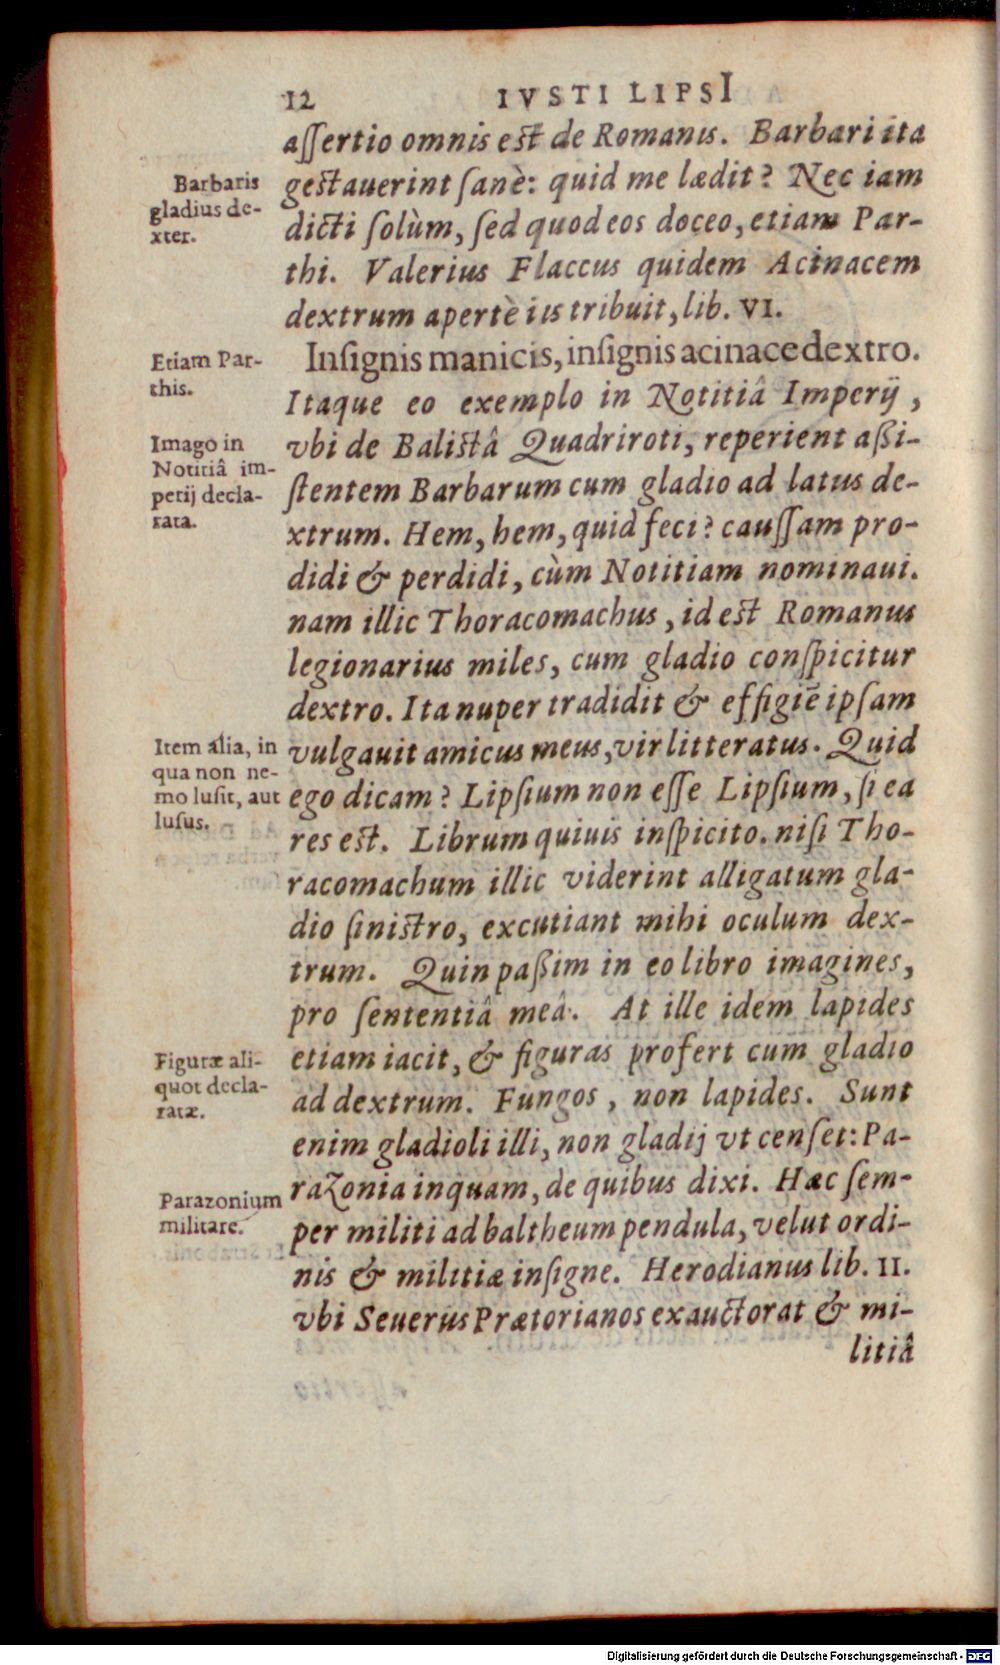 12 IVSTI LIPSI
assertio omnis est de Romanis. Barbari ita
gestauerint sanè: quid me lædit? Nec iam
dicti solùm, sed quod eos doceo, etiam Par-
thi. Valerius Flaccus quidem Acinacem
dextrum apertè iis tribuit, lib. VI.
Insignis manicis, insignis acinace dextro.
Itaque eo exemplo in Notitiâ Imperij,
vbi de Balistâ Quadriroti, reperient assi-
stentem Barbarum cum gladio ad latus de-
xtrum. Hem, hem, quid feci? caussam pro-
didi & perdidi, cùm Notitiam nominaui.
nam illic Thoracomachus, id est Romanus
legionarius miles, cum gladio conspicitur
dextro. Ita nuper tradidit & effigiē ipsam
vulgauit amicus meus, vir litteratus. Quid
ego dicam? Lipsium non esse Lipsium, si ea
res est. Librum quiuis inspicito. nisi Tho-
racomachum illic viderint alligatum gla-
dio sinistro, excutiant mihi oculum dex-
trum. Quin passim in eo libro imagines,
pro sententiâ meâ. At ille idem lapides
etiam iacit, & figuras profert cum gladio
ad dextrum. Fungos, non lapides. Sunt
enim gladioli illi, non gladij vt censet: Pa-
razonia inquam, de quibus dixi. Hæc sem-
per militi ad baltheum pendula, velut ordi-
nis & militiæ insigne. Herodianus lib. II.
vbi Seuerus Prætorianos exauctorat & mi-
litiâ
Barbaris
gladius de-
xter.
Etiam Par-
this.
Imago in
Notitiâ im-
perij decla-
rata.
Item alia, in
qua non ne-
mo lusit, aut
lusus.
Figuræ ali-
quot decla-
ratæ.
Parazonium
militare.
Digitalisierung gefördert durch die Deutsche Forschungsgemeinschaft - DFG